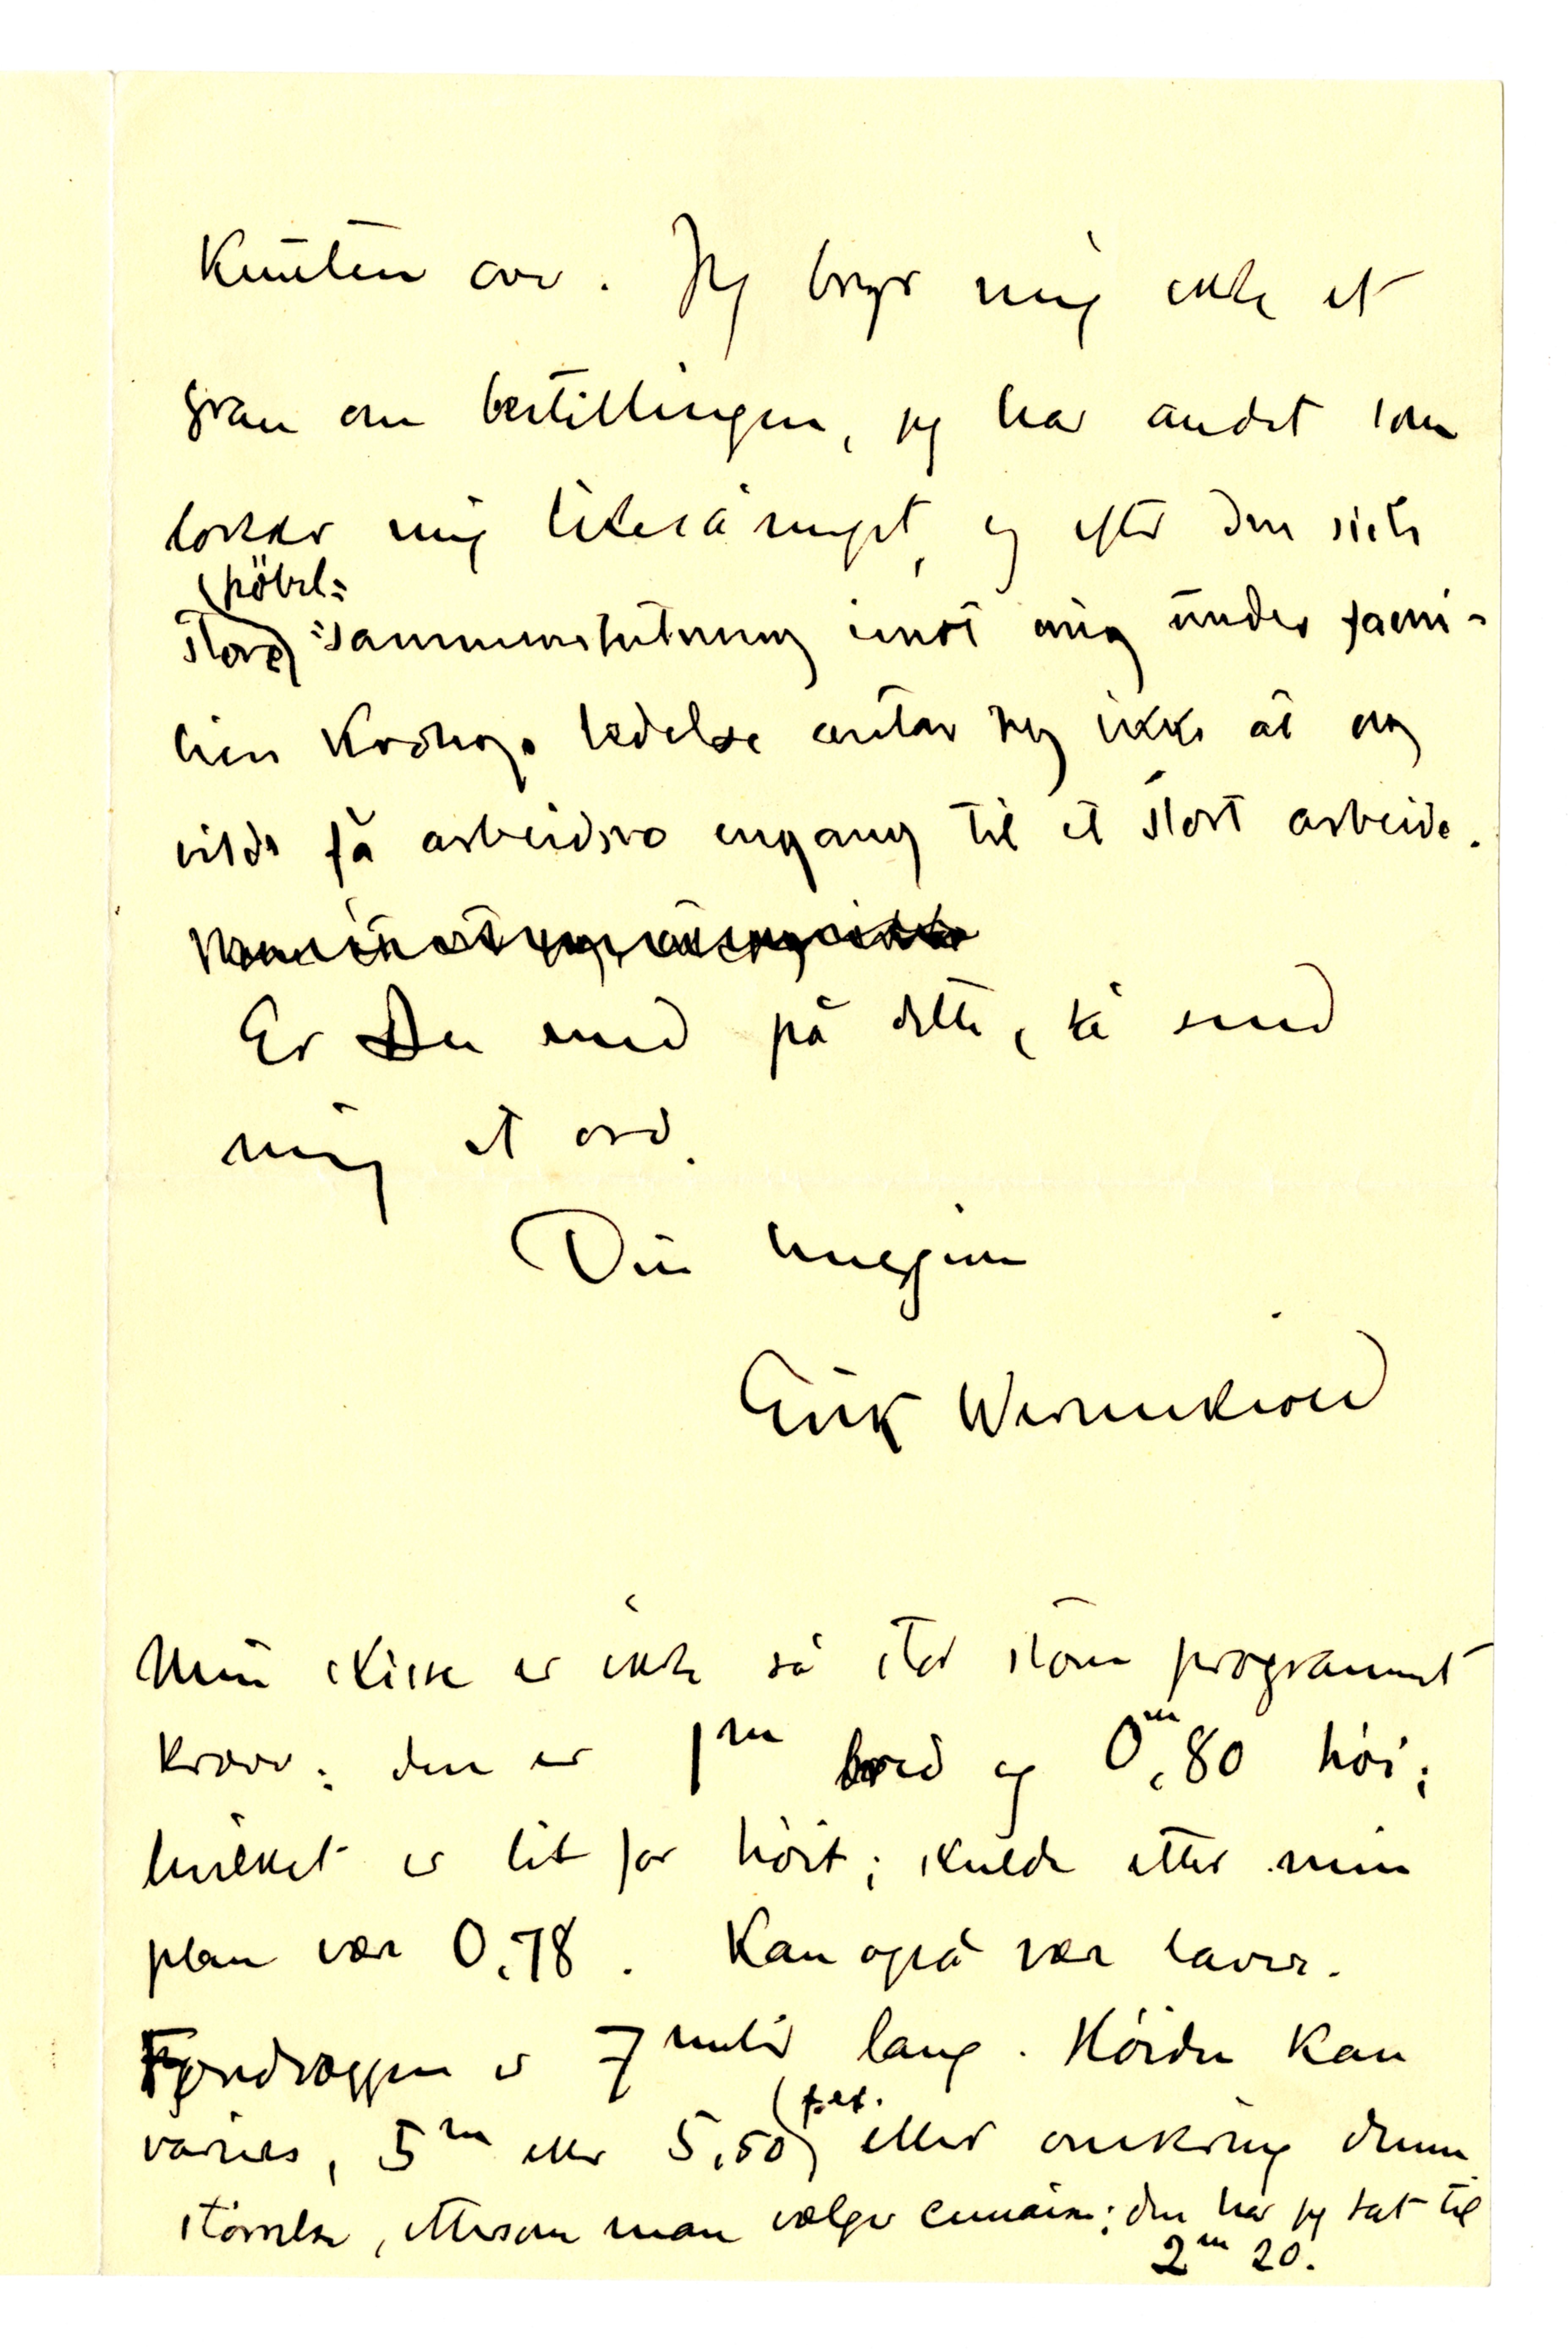 Knuten over. Jeg bryr mig ikke et
gran om bestillingen, jeg har andet som
lokker mig likeså meget, og efter den siste
store pöbel-sammenslutning imot mig under fami-
lien Krohgs ledelse antar jeg ikke at jeg
vilde få arbeidsro engang til et stort arbeide.
Er Du med på dette, så send
mig et ord.
Din hengivne
Erik Werenskiold
Min skisse er ikke så stor som programmet
kræver: den er 1m bred og 0,m80 höi;
hvilket er lit for höit; skulde etter min
plan være 0,78. Kan også være lavere.
Fondvæggen er 7 meter lang. Höiden kan
varieres, 5m eller 5,50 (f. ex.) eller omkring denne
störrelse, ettersom man vælger cimaise; den har jeg sat til
2m 20.